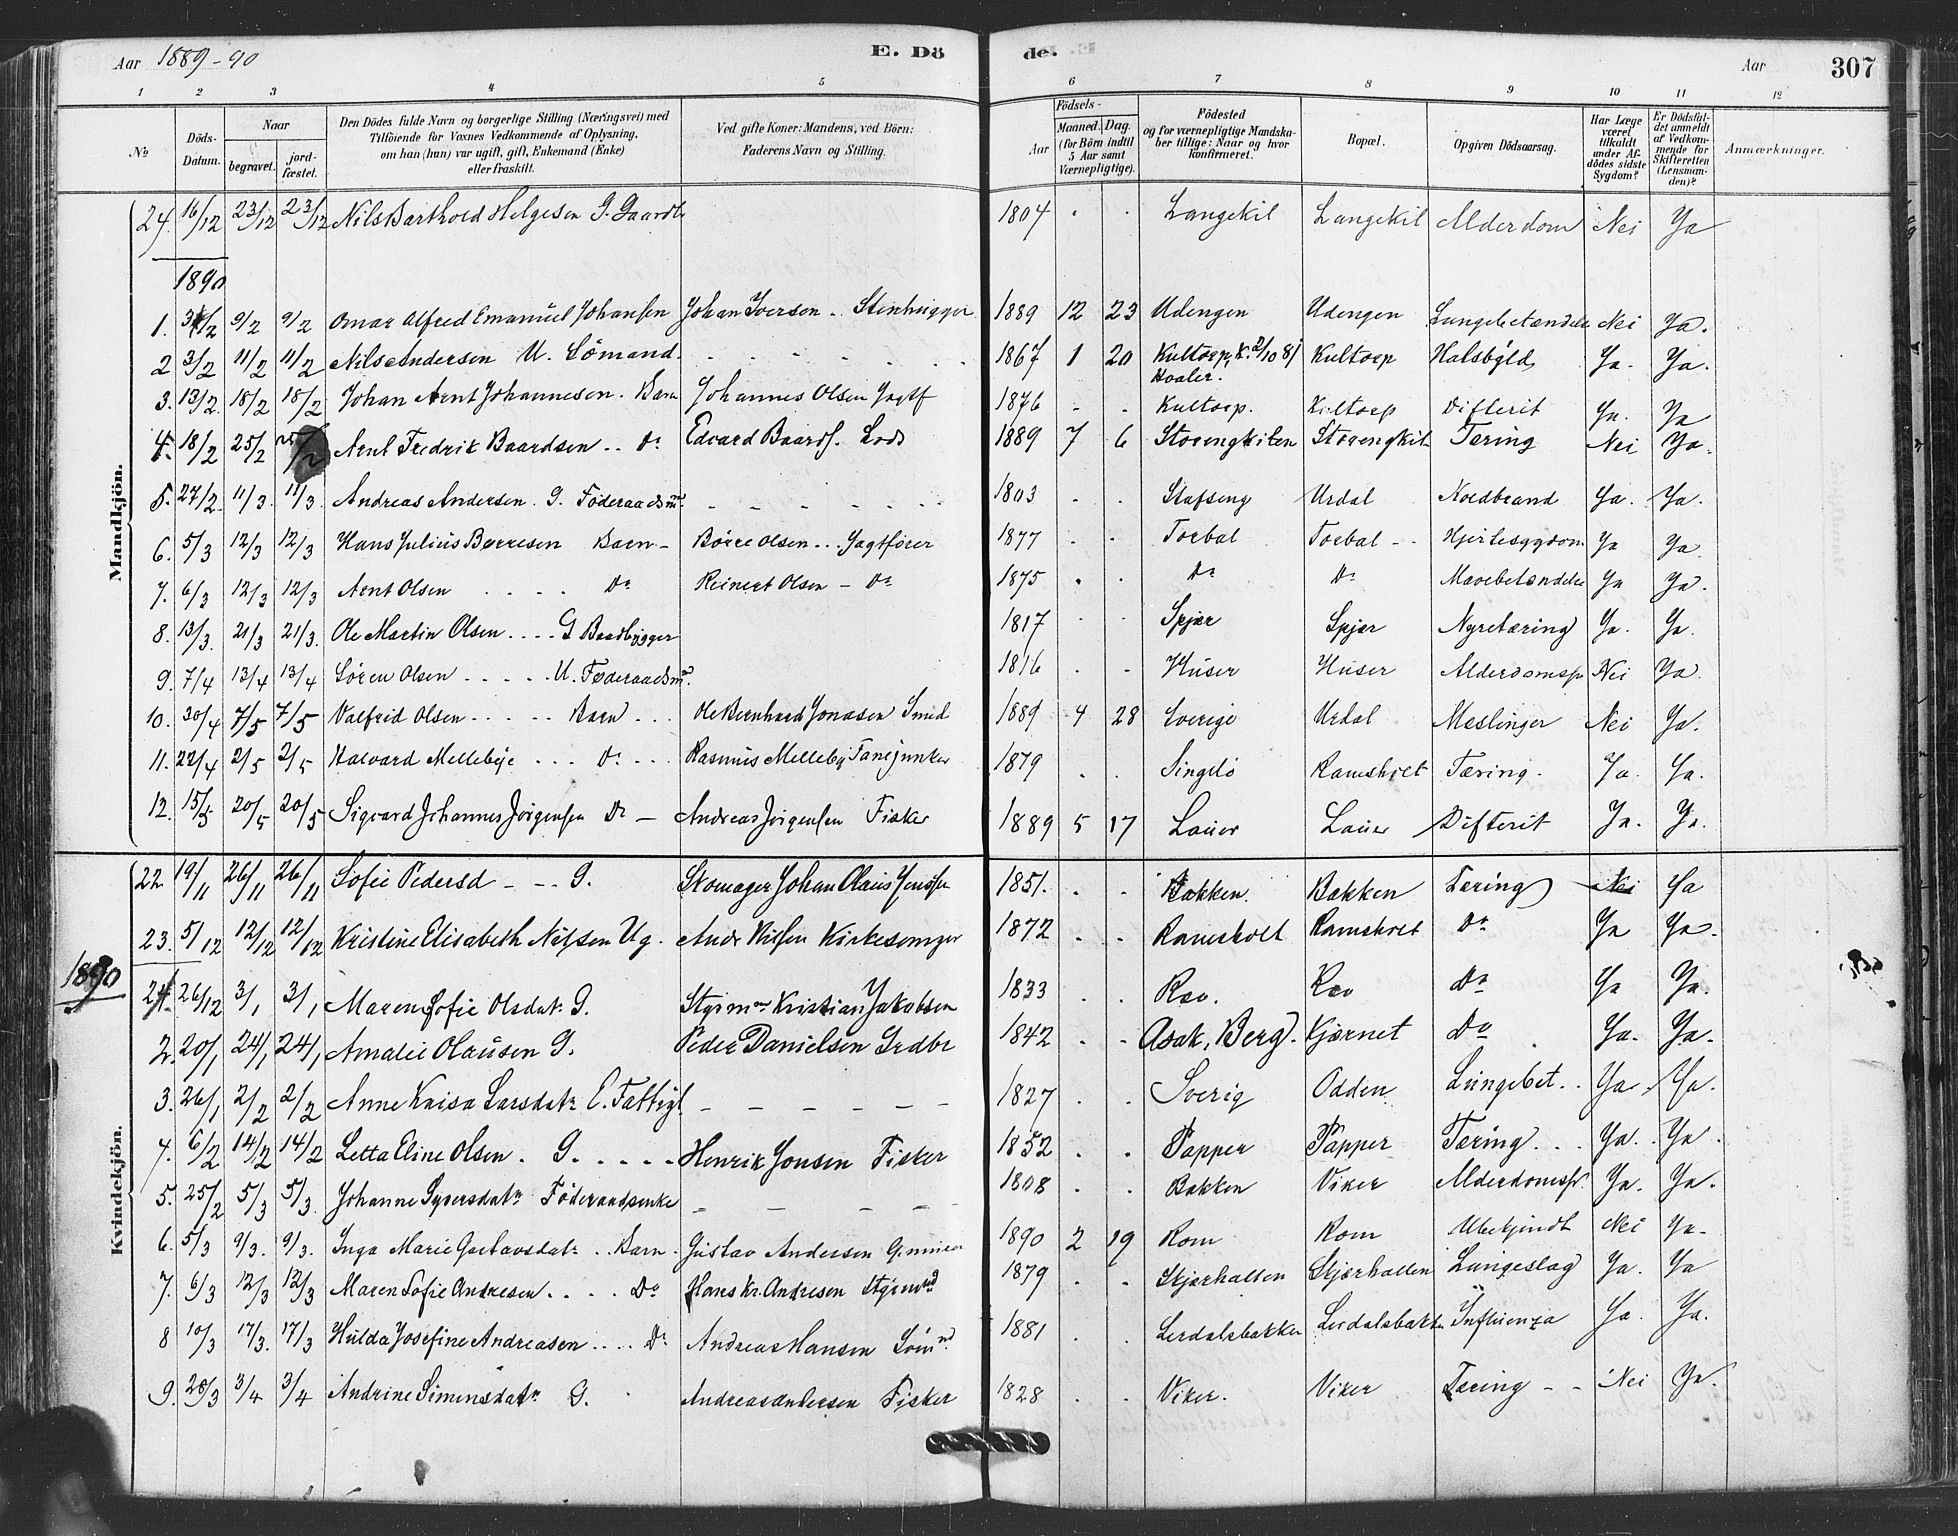 Aar 1889-90 E. Dö de. Aar 307
1 2 3 4 5 6 7 8 9 10 11 12
No Döds-Datum. Naar begravet. jord-fæstet. Den Dödes fulde Navn og borgerlige Stilling (Næringsvei) med Tilföiende for Voxnes Vedkommende af Oplysning, om han (hun) var ugift, gift, Enkemand (Enke) eller fraskilt. Ved gifte Koner: Mandens, ved Börn: Faderens Navn og Stilling. Födsels- Aar Maaned. Dag. (for Börn indtil 5 Aar samt Værnepligtige). Födested og for værnepligtige Mandskaber tillige: Naar og hvor konfirmeret. Bopæl. Opgiven Dödsaarsag. Har Læge været tilkaldt under Afdödes sidste Sygdom? Er Dödsfaldet anmeldt af Vedkommende for Skifteretten (Lensmanden)? Anmærkninger.
Mandkjön.
24. 16/12 23/12 23/12 Nils Barthold Helgesen G. Gaardb 1804 . . Langekil Langekil Alderdom Nei Ja
1890
1. 9/2 9/2 Omar Alfred Emanuel Johansen Johan Iversen .. Stenhugger 1889 12 23 Udengen Udengen Lungebetændelse Nei Ja.
2 3/2 11/2 11/2 Nils Andersen U. Sömand. 1867 1 20 Kultorp, K. 2/10 81 Hvaler. Kultorp Halsbyld Ja. Ja.
3. 13/2 18/2 18/2 Johan Arnt Johannesen. Barn Johannes Olsen Jagtf 1876 - . Kultorp. Kultorp Difterit Ja. Ja
4. 18/2 25/2 25/2 Arnt Fredrik Baardsen .. Do Edvard Baards. Lods 1889 7 6 Storengkilen Storengkil Tæring Nei Ja.
5. 27/2 11/3 11/3 Andreas Andersen. G. Föderaadsm. 1803 . . Stafseng Urdal Koldbrand Ja. Ja.
6. 5/3 12/3 12/3 Hans Julius Börresen Barn - Börre Olsen ... Jagtförer 1877 . . Torbal Torbal - - Hjertesygdom Ja Ja.
7. 6/3 12/3 12/3 Arnt Olsen . . . . Do Reinert Olsen - Do 1875 . . Do Do Mavebetændelse Ja Ja.
8. 13/3 21/3 21/3. Ole Martin Olsen .... G Baadbygger 1817 . . Spjær Spjær Nyretæring Ja. Ja.
9. 7/4 13/4 13/4 Sören Olsen . . . . . U. Föderaadsm. 1816 . . Huser Huser Alderdomssv Nei Ja.
10. 30/4 7/5 7/5 Valfrid Olsen . . . . . Barn ... Ole Bernhard Jonasen Smed 1889 4 28 Sverige Urdal Meslinger Nei Ja.
11. 22/4 2/5 2/5 Halvard Mellebye ... Do ... Rasmus Melleby Fanejunker 1879 . . Singelö Ramsholt Tæring. Ja. Ja.
12. 15/5 20/5 20/5 Sigvard Johannes Jörgensen Do - Andreas Jörgensen Fisker 1889 5 17 Lauer Lauer Difterit Ja. Ja.
Kvindekjön.
22. 19/11 26/11 26/11 Sofie Pedersd - - G. Skomager Johan Olaus Jensen 1851. . . Bakken. Bakken Tæring Nei Ja
23. 5/12 12/12 12/12 Kristine Elisabeth Nilsen Ug. Andr Nilsen Kirkesanger 1872 . . Ramsholt Ramsholt Do Ja Ja.
1890
26/12 3/1 3/1 Maren Sofie Olsdatr G. Styrmn Kristian Jakobsen 1833 . . Rev. Rev Do Ja Ja.
2. 20/1 24/1 24/1 Amalie Olausen G. Peder Danielsen Grdbr 1842 . . Asak, Berg. Kjærnet Do . Ja. Ja.
3. 26/1 2/2 2/2 Anne Kaisa Larsdatr E. Fattigl - - - - - - 1827 . . Sverig Odden Lungebet.. Ja . Ja.
4. 6/2 14/2 14/2 Letta Eline Olsen. G. . . . . Henrik Jonsen Fisker 1852 . . Papper Papper Tæring ... Ja. . Ja .
5. 25/2 5/3 5/3 Johanne Syversdatr Föderaadsenke 1808 . . Bakken Viker Alderdomssv. Ja. Ja.
6. 5/3 9/3. 9/3. Inga Marie Gustavsdatr . Barn . Gustav Andersen 1890 2 19 Rom Rom Ubekjendt Nei Ja.
7. 6/3 12/3 12/3 Maren Sofie Andresen. . . . Do Hans Kr. Andresen Styrmnd 1879 . . Skjærhallen Skjærhallen Lungeslag Ja. Ja
8 10/3 17/3. 17/3 Hulda Josefine Andreasen .... Do Andreas Hansen Sömnd. 1881 . . Lerdalsbakken Lerdalsbakken Influenza Ja. Ja.
9. 28/3 3/4 3/4 Andrine Simensdatr G. Andreas Andersen Fisker 1828 . . Viker. Viker Tæring - - Nei Ja.